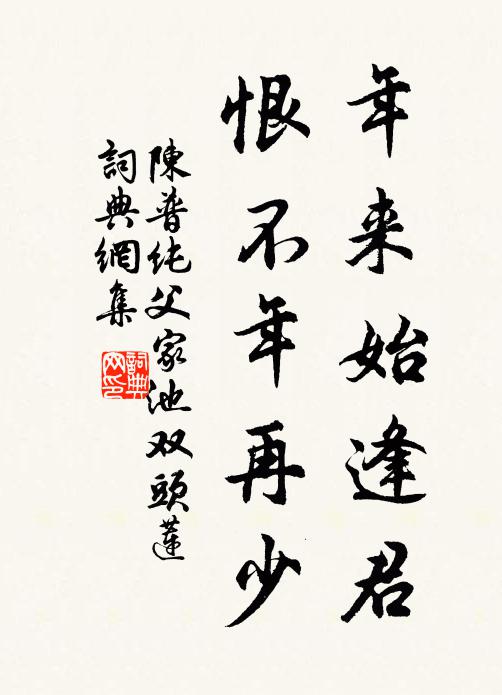 年来始逢君
恨不年再少
陳普純父家池双頭蓮
詞典網集
詞典网印